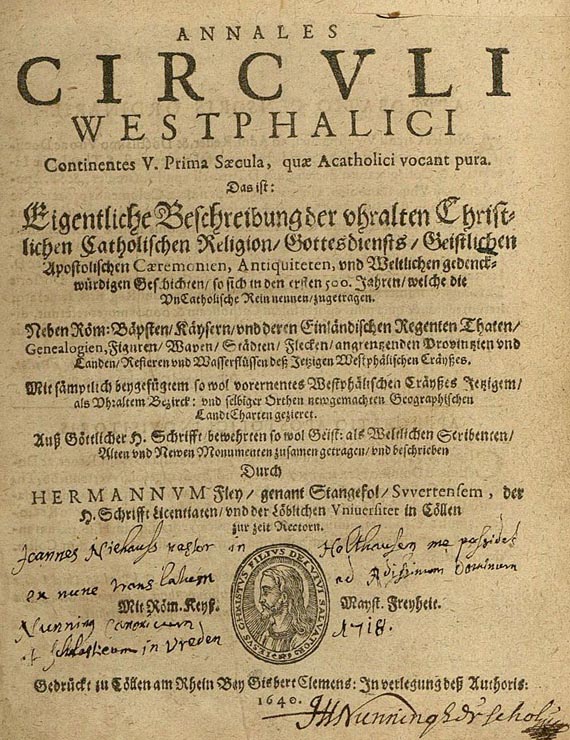 ANNALES
CIRCVLI
WESTPHALICI
Continentes V. Prima Sæcula, quæ Acatholici vocant pura.
Das ist:
Eigentliche Beschreibung der vhralten Christ-
lichen Catholischen Religion/ Gottesdiensts/ Geistlichen
Apostolischen Cæremonien, Antiquiteten, vnd Weltlichen gedenck-
würdigen Geschichten/ so sich in den ersten 500. Jahren/ welche die
VnCatholische Rein nennen/ zugetragen.
Neben Röm: Bäpsten/ Käysern/ vnd deren Einländischen Regenten Thaten/
Genealogien, Figuren/ Wapen/ Städten/ Flecken/ angrentzenden Provintzien vnd
Landen/ Refieren vnd Wasserflüssen deß Jetzigen Westphälischen Cräyßes.
Mit sämptlich beygefügtem so wol vorernentes Westphälischen Cräyßes Jetzigem/
als Vhraltem Bezirck: vnd selbiger Orthen newgemachten Geographischen
LandtCharten gezieret.
Auß Göttlicher H. Schrifft/ bewehrten so wol Geist: als Weltlichen Scribenten/
Alten vnd Newen Monumenten zusamen getragen/ vnd beschrieben
Durch
HERMANNVM Fley/ genant Stangefol/ Svvertensem, der
H. Schrifft Licentiaten/ vnd der Löblichen Vniversitet in Cöllen
zur zeit Rectorn.
Joannes Niehauß pastor in Holthausen me possidet
ex nunc translatum ad Dominum
Mit Röm. Keyß. Mayst. Freyheit.
IESVS CHRISTVS FILIVS DEI VIVI SALVATOR
Nunning canonicum 1718.
et scholasticum in Vreden
Gedrückt zu Cöllen am Rhein Bey Gisbert Clemens: In verlegung deß Authoris:
1640.
Nunning